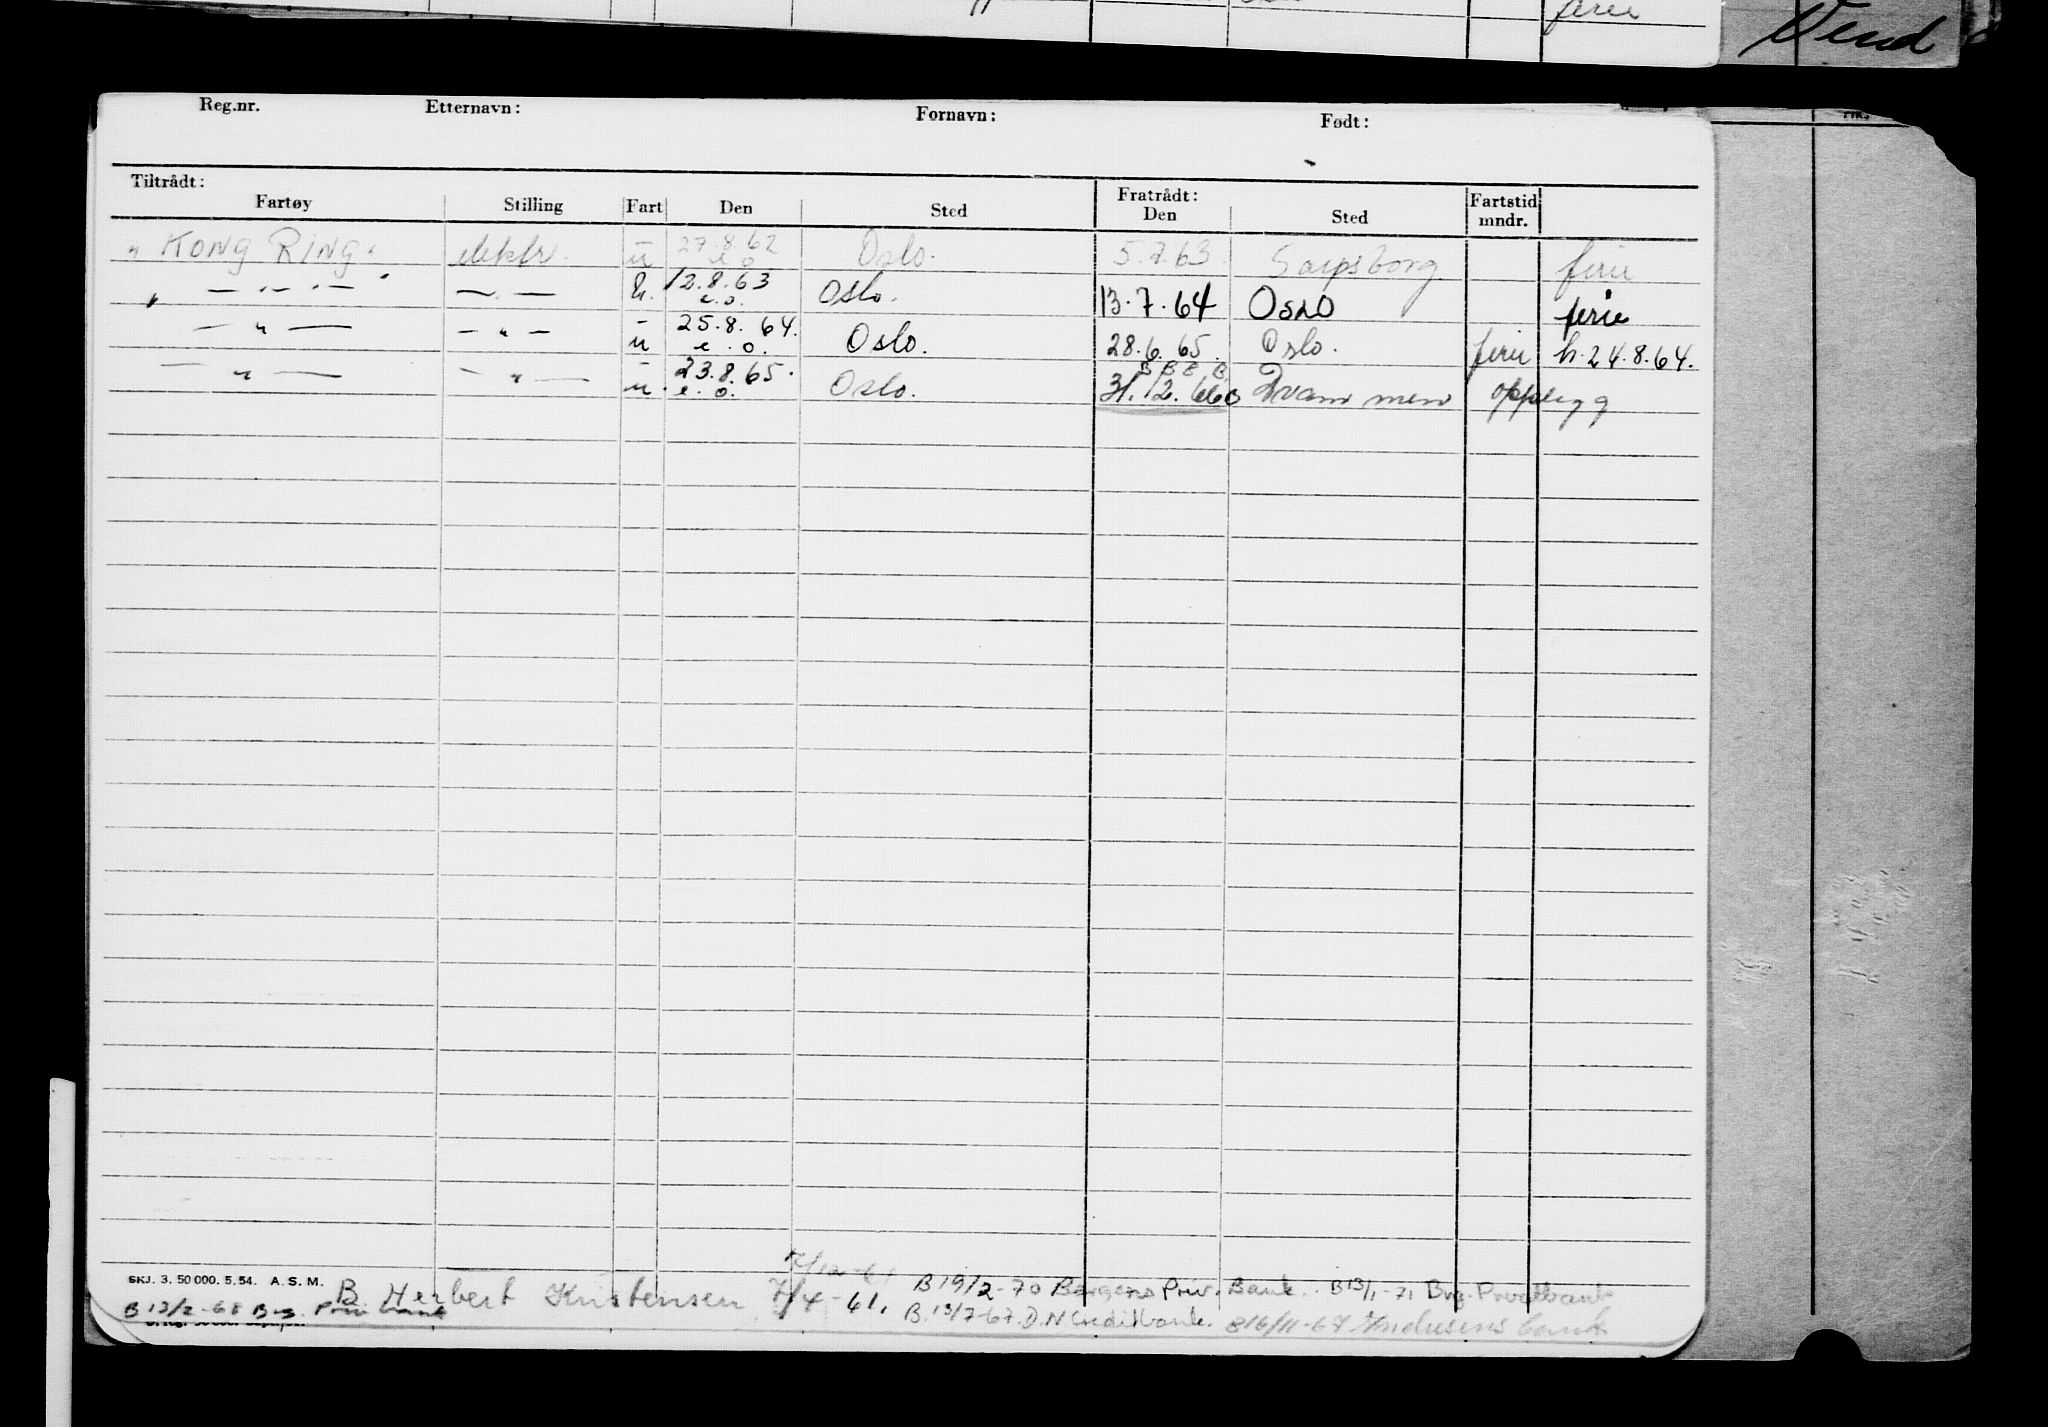 ferie
Vend
Reg.nr. Etternavn: Fornavn: Født:
Tiltrådt: Fratrådt: Fartstid
Fartøy Stilling Fart Den Sted Den Sted mndr.
" KONG RING " elektr. u 27.8.62 e.o Oslo. 5.7.63 Sarpsborg ferie
" — " — " — — " — u. 12.8.63 e.o. Oslo. 13.7.64 OSLO ferie
— " — — " — u 25.8.64. e.o. Oslo. 28.6.65. Oslo. ferie h. 24.8.64.
— " — — " — u. 23.8.65. e.o. Oslo. 31.12.66 Drammen opplegg
7/12-61
SKJ. 3. 50 000. 5. 54. A. S. M. B. Herbert Kristensen 7/4-61. B 19/2-70 Bergens Priv. Bank. B 13/1-71 Brg. Privatbank
B 13/2-68 B-s. Priv bank B. 13/7-67. D.N Creditbank. B 16/11-67 Andresens bank